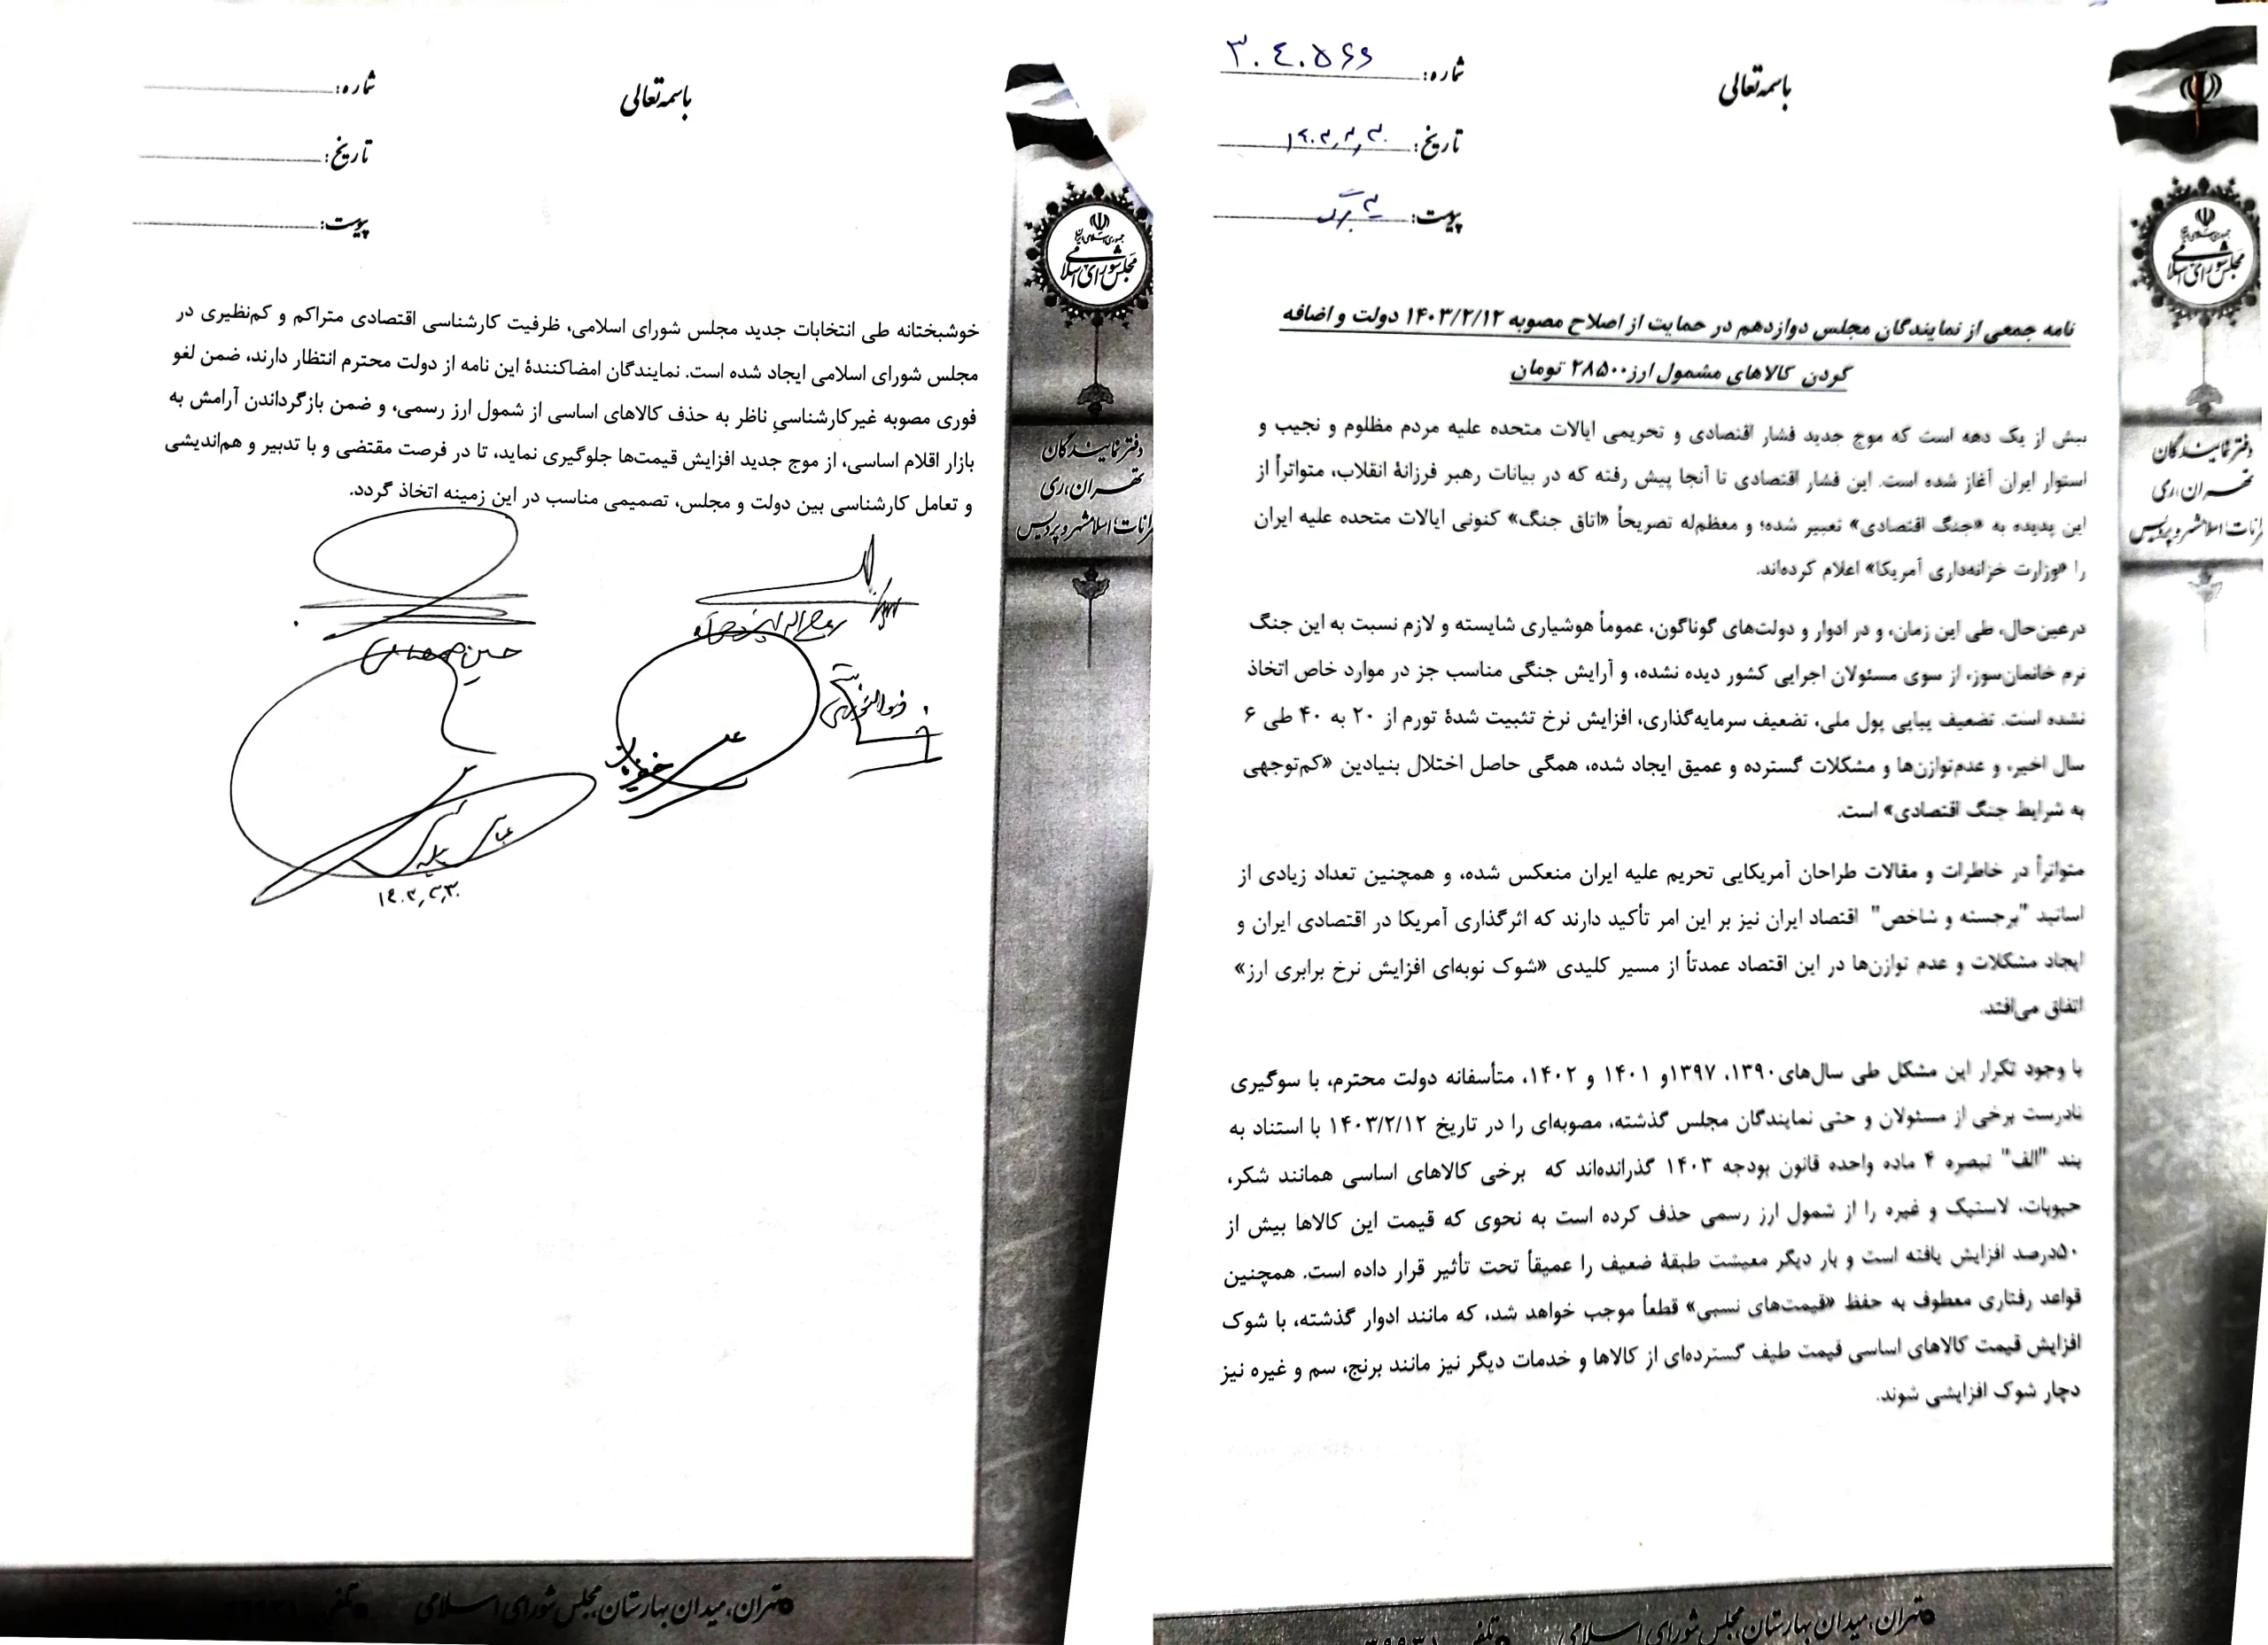 باسمه‌تعالی
شماره: ۳۰۴۰۵۶۶
تاریخ: ۱۴۰۳٫۳٫۳۰
پیوست: ۲ برگ
مجلس شورای اسلامی
دفتر نمایندگان
تهران، ری
اسلامشهر و پردیس
نامه جمعی از نمایندگان مجلس دوازدهم در حمایت از اصلاح مصوبه ۱۴۰۳/۲/۱۲ دولت و اضافه
گردن کالاهای مشمول ارز۲۸۵۰۰ تومان
بیش از یک دهه است که موج جدید فشار اقتصادی و تحریمی ایالات متحده علیه مردم مظلوم و نجیب و
استوار ایران آغاز شده است. این فشار اقتصادی تا آنجا پیش رفته که در بیانات رهبر فرزانهٔ انقلاب، متواتراً از
این پدیده به «جنگ اقتصادی» تعبیر شده؛ و معظم‌له تصریحاً «اتاق جنگ» کنونی ایالات متحده علیه ایران
را «وزارت خزانه‌داری آمریکا» اعلام کرده‌اند.
درعین‌حال، طی این زمان، و در ادوار و دولت‌های گوناگون، عموماً هوشیاری شایسته و لازم نسبت به این جنگ
نرم خانمان‌سوز، از سوی مسئولان اجرایی کشور دیده نشده، و آرایش جنگی مناسب جز در موارد خاص اتخاذ
نشده است. تضعیف پیاپی پول ملی، تضعیف سرمایه‌گذاری، افزایش نرخ تثبیت شدهٔ تورم از ۲۰ به ۴۰ طی ۶
سال اخیر، و عدم‌توازن‌ها و مشکلات گسترده و عمیق ایجاد شده، همگی حاصل اختلال بنیادین «کم‌توجهی
به شرایط جنگ اقتصادی» است.
متواتراً در خاطرات و مقالات طراحان آمریکایی تحریم علیه ایران منعکس شده، و همچنین تعداد زیادی از
اساتید "برجسته و شاخص" اقتصاد ایران نیز بر این امر تأکید دارند که اثرگذاری آمریکا در اقتصادی ایران و
ایجاد مشکلات و عدم توازن‌ها در این اقتصاد عمدتاً از مسیر کلیدی «شوک نوبه‌ای افزایش نرخ برابری ارز»
اتفاق می‌افتد.
با وجود تکرار این مشکل طی سال‌های۱۳۹۰، ۱۳۹۷و ۱۴۰۱ و ۱۴۰۲، متأسفانه دولت محترم، با سوگیری
نادرست برخی از مسئولان و حتی نمایندگان مجلس گذشته، مصوبه‌ای را در تاریخ ۱۴۰۳/۲/۱۲ با استناد به
بند "الف" تبصره ۴ ماده واحده قانون بودجه ۱۴۰۳ گذرانده‌اند که برخی کالاهای اساسی همانند شکر،
حبوبات، لاستیک و غیره را از شمول ارز رسمی حذف کرده است به نحوی که قیمت این کالاها بیش از
۵۰درصد افزایش یافته است و بار دیگر معیشت طبقهٔ ضعیف را عمیقاً تحت تأثیر قرار داده است. همچنین
قواعد رفتاری معطوف به حفظ «قیمت‌های نسبی» قطعاً موجب خواهد شد، که مانند ادوار گذشته، با شوک
افزایش قیمت کالاهای اساسی قیمت طیف گسترده‌ای از کالاها و خدمات دیگر نیز مانند برنج، سم و غیره نیز
دچار شوک افزایشی شوند.
تهران، میدان بهارستان، مجلس شورای اسلامی
تلفن
باسمه‌تعالی
شماره:
تاریخ:
پیوست:
جمهوری اسلامی ایران
مجلس شورای اسلامی
دفتر نمایندگان
تهران، ری
اسلامشهر و پردیس
خوشبختانه طی انتخابات جدید مجلس شورای اسلامی، ظرفیت کارشناسی اقتصادی متراکم و کم‌نظیری در
مجلس شورای اسلامی ایجاد شده است. نمایندگان امضاکنندهٔ این نامه از دولت محترم انتظار دارند، ضمن لغو
فوری مصوبه غیرکارشناسیِ ناظر به حذف کالاهای اساسی از شمول ارز رسمی، و ضمن بازگرداندن آرامش به
بازار اقلام اساسی، از موج جدید افزایش قیمت‌ها جلوگیری نماید، تا در فرصت مقتضی و با تدبیر و هم‌اندیشی
و تعامل کارشناسی بین دولت و مجلس، تصمیمی مناسب در این زمینه اتخاذ گردد.
حسین صمصامی
علی خضریان
۱۴۰۳٫۳٫۳۰
تهران، میدان بهارستان، مجلس شورای اسلامی
تلفن